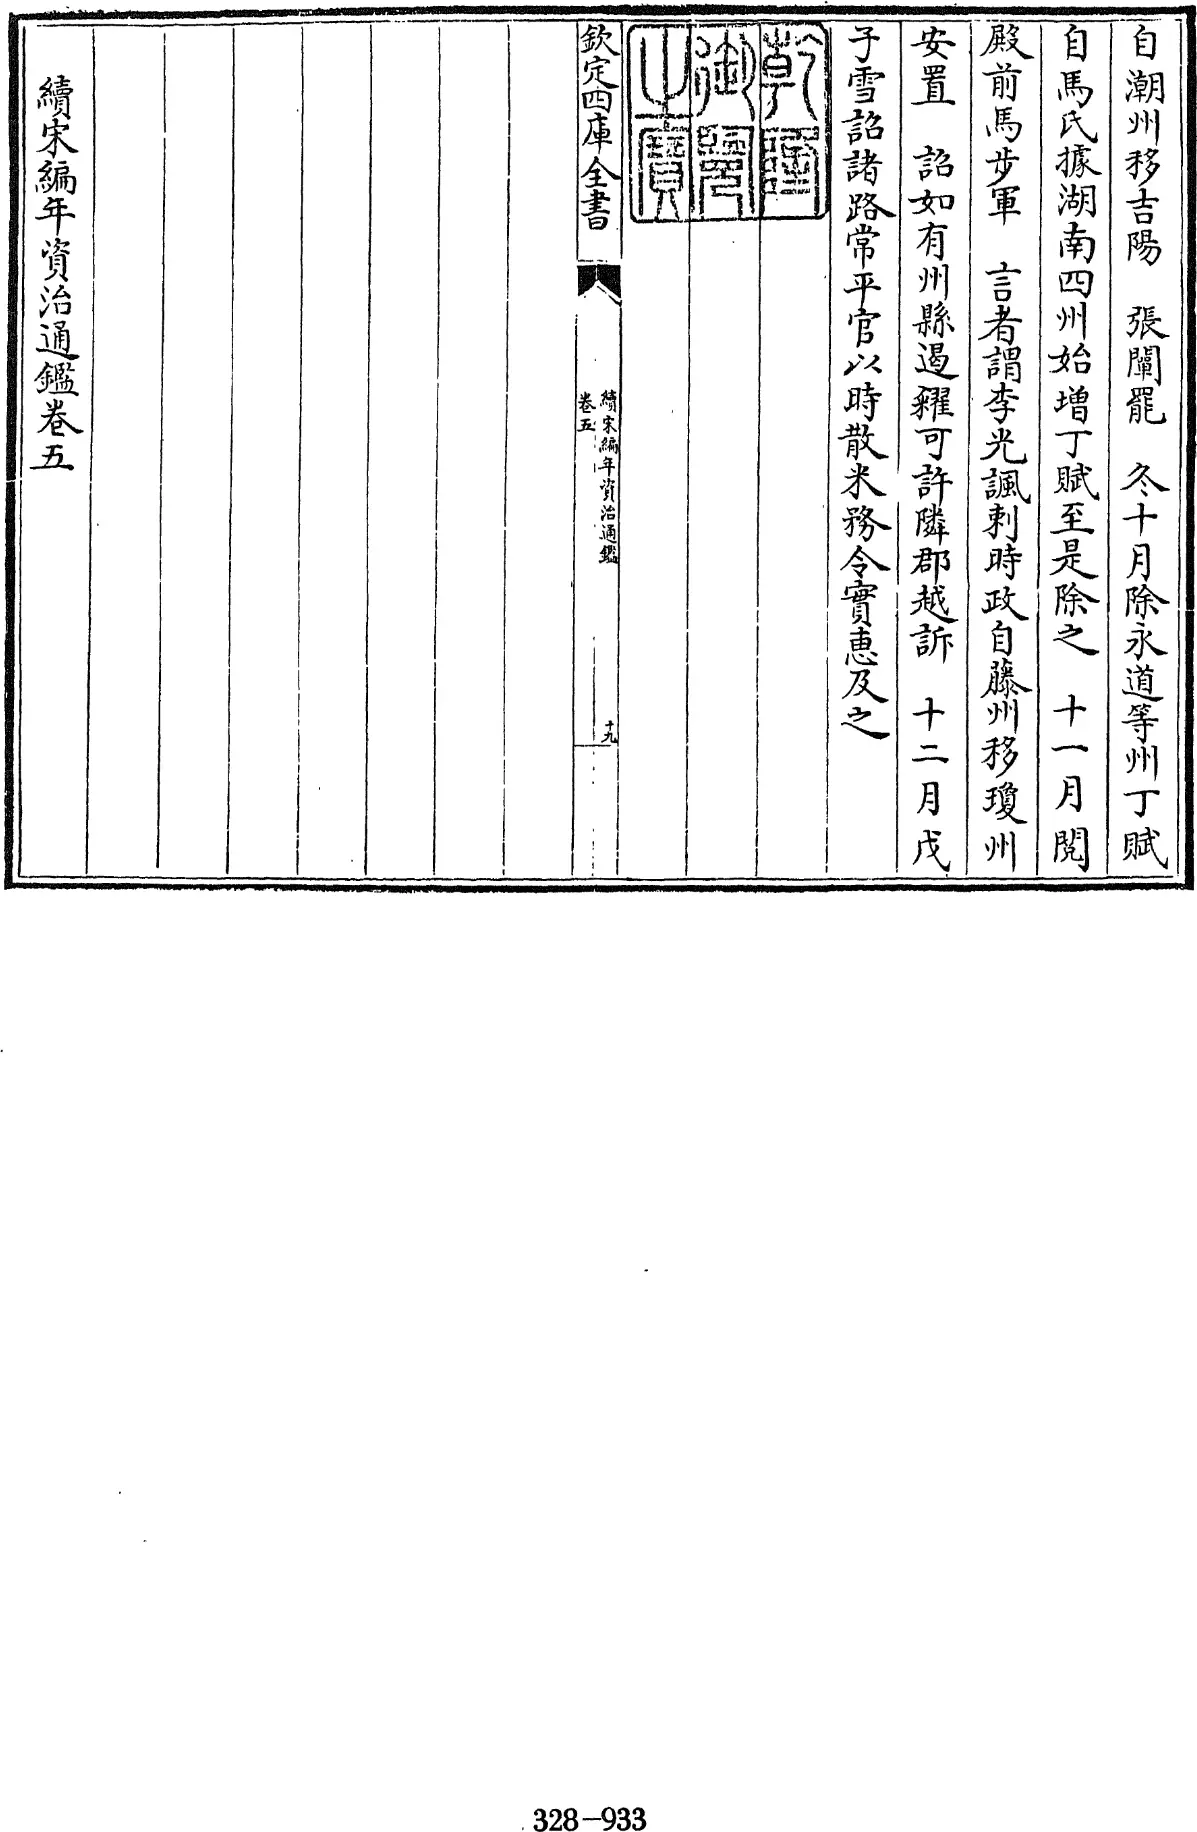 自潮州移吉陽　張闡罷　冬十月除永道等州丁賦
自馬氏據湖南四州始增丁賦至是除之　十一月閱
殿前馬步軍　言者謂李光諷刺時政自藤州移瓊州
安置　詔如有州縣遏糴可許隣郡越訴　十二月戊
子雪詔諸路常平官以時散米務令實惠及之
乾隆
御覽
之寶
欽定四庫全書
續宋編年資治通鑑
卷五
十九
續宋編年資治通鑑卷五
328-933